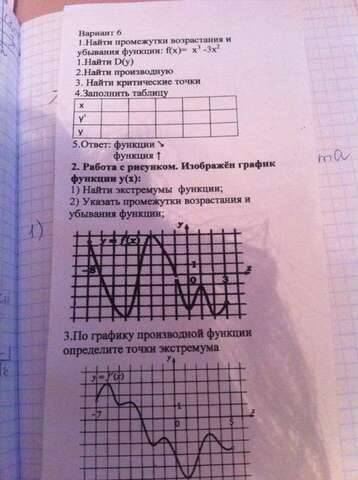 Вариант 6
1.Найти промежутки возрастания и
убывания функции: f(x)= x³ -3x²
1.Найти D(y)
2.Найти производную
3. Найти критические точки
4.Заполнить таблицу
x
y'
y
5.Ответ: функции ↘
функция ↑
2. Работа с рисунком. Изображён график
функции y(x):
1) Найти экстремумы функции;
2) Указать промежутки возрастания и
убывания функции;
1)
та
y
y = f(x)
-8
1
0
3
3.По графику производной функции
определите точки экстремума
y
y = f'(x)
-7
1
0
5